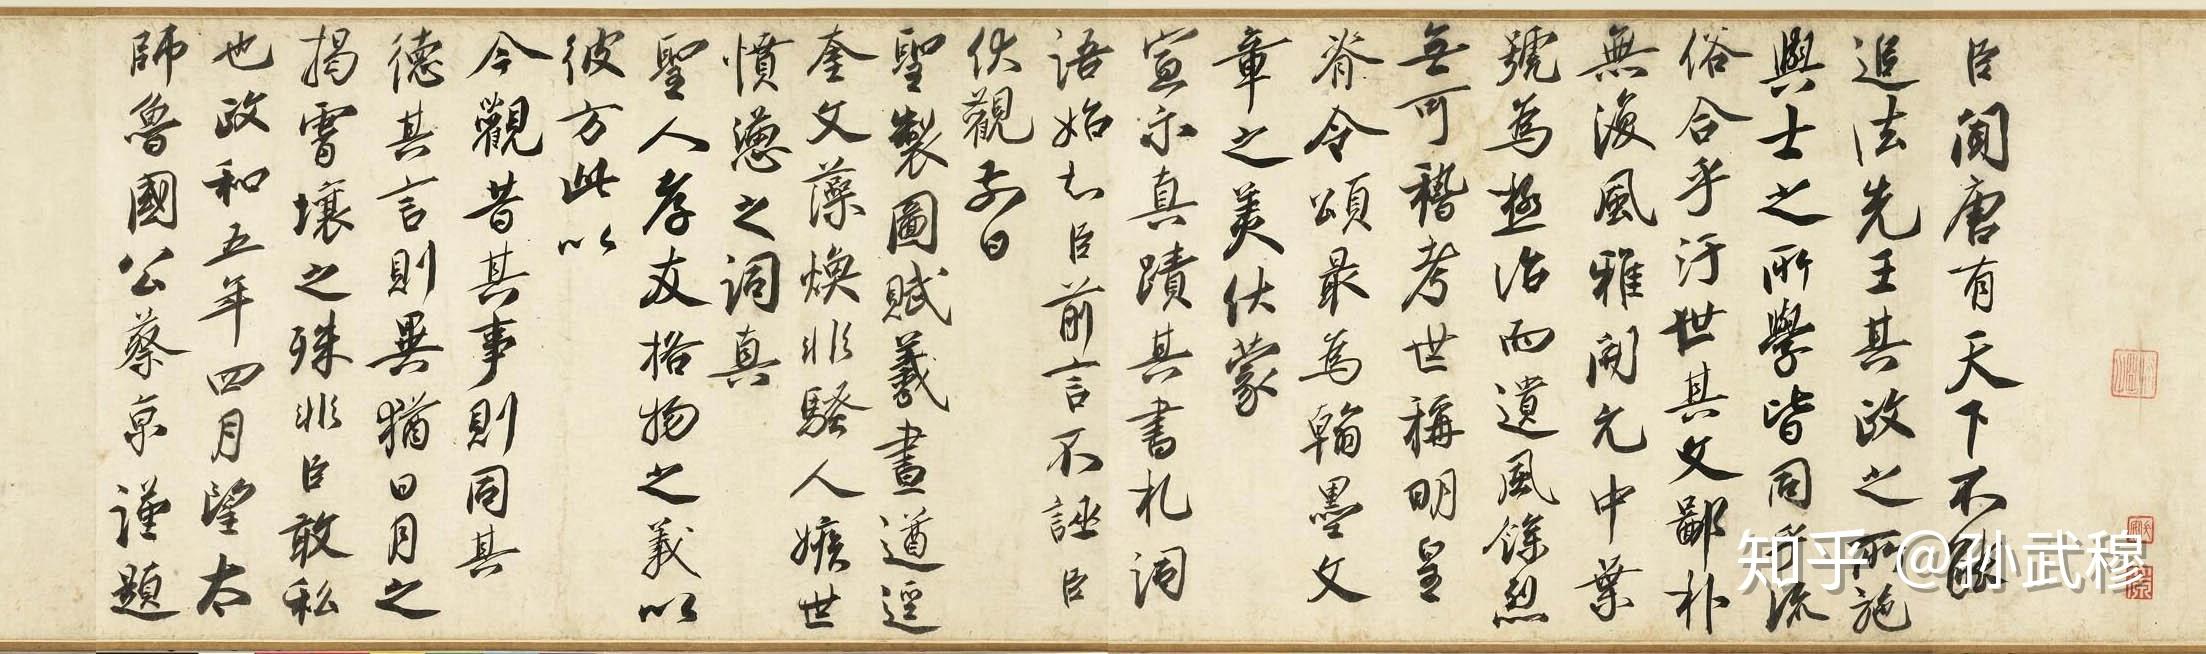 臣聞唐有天下不能
追法先王其政之所施
與士之所學皆同乎流
俗合乎汙世其文鄙朴
無復風雅開元中葉
號為極治而遺風餘烈
無可稽考世稱明皇
脊令頌最為翰墨文
章之美伏蒙
宣示真蹟其書札詞
語始知臣前言不誣臣
伏觀前日
聖製圖賦羲畫遒逕
奎文藻煥非騷人嫉世
憤懣之詞真
聖人孝友格物之義以
彼方此以
今觀昔其事則同其
德其言則異猶日月之
揭霄壤之殊非臣敢私
也政和五年四月望太
師魯國公蔡京謹題
知乎 @孙武穆